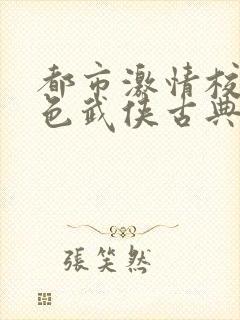 都市激情校
色武侠古典
張笑然